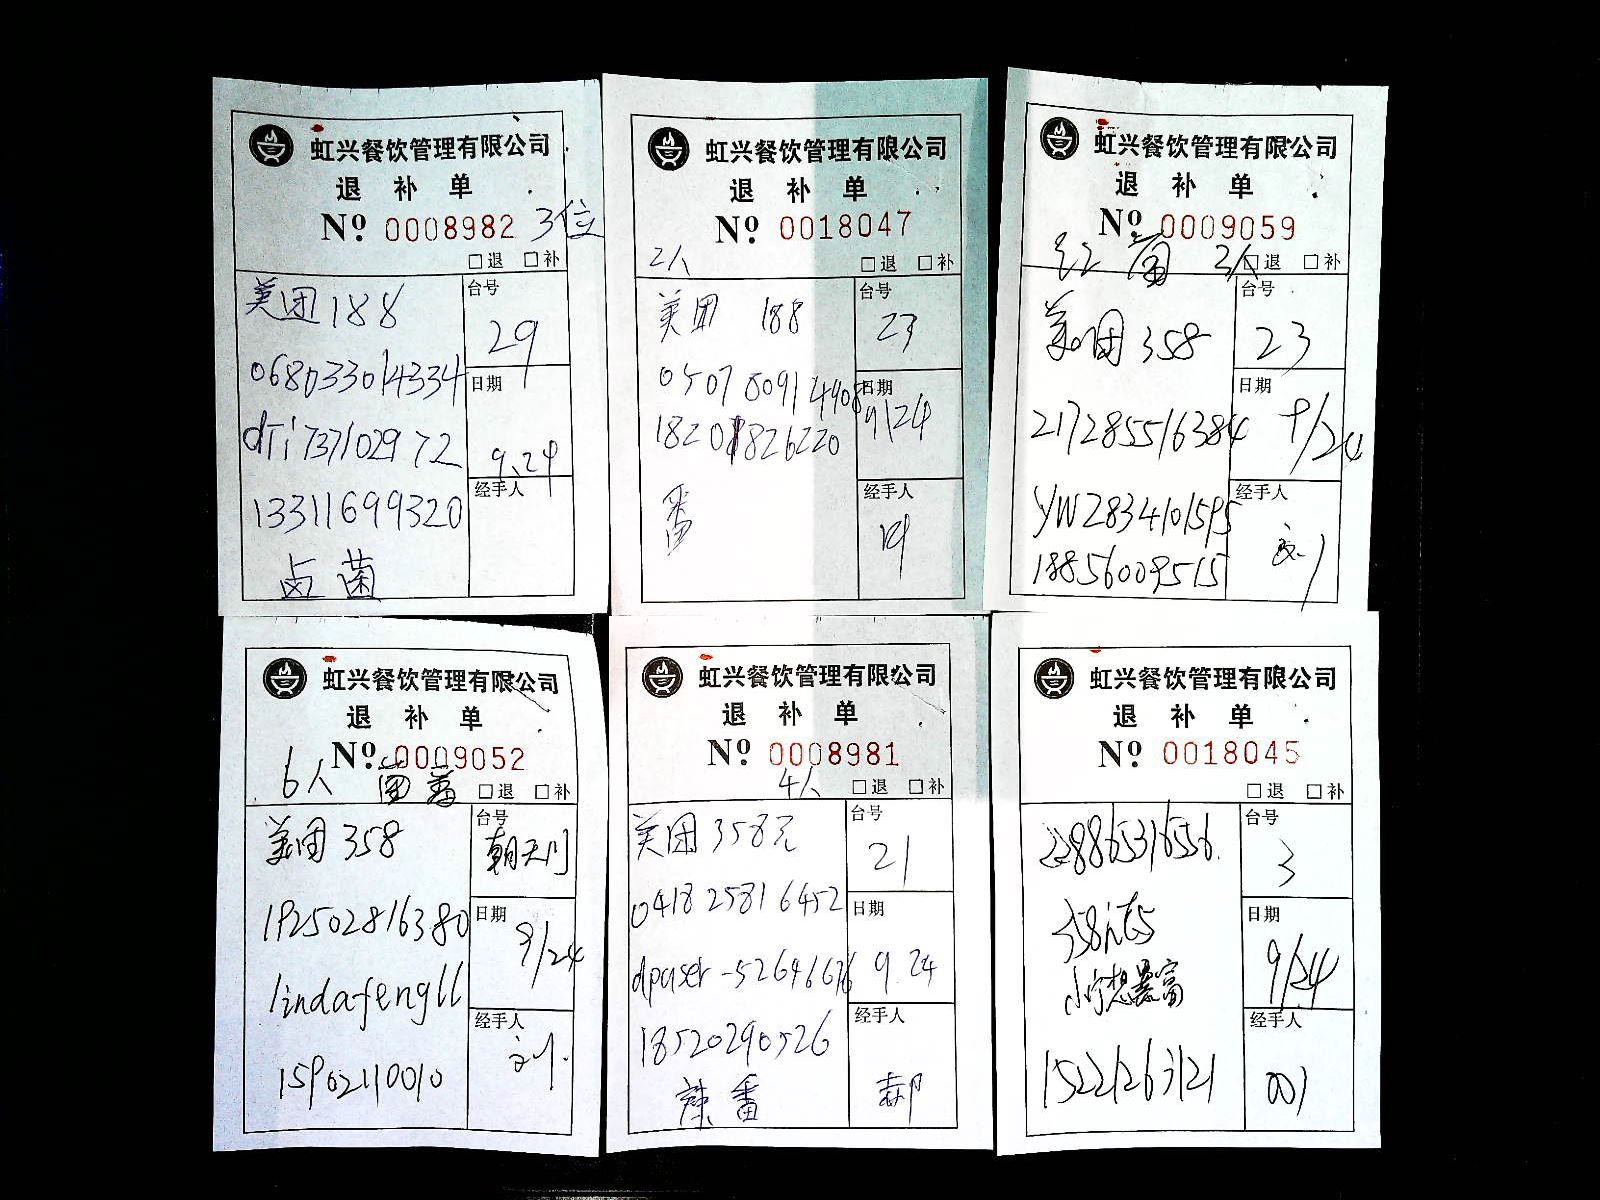 虹兴餐饮管理有限公司
退 补 单
Nº 0008982 3位
□退 □补
美团188
台号
29
068033014334
日期
9.24
dTi737102972
经手人
13311699320
卤 菌
虹兴餐饮管理有限公司
退 补 单
Nº 0018047
2人
□退 □补
美团 188
台号
23
050780914908
日期
9/24
18201826220
经手人
番
虹兴餐饮管理有限公司
退 补 单
Nº 0009059
红 菌 3人
□退 □补
美团 358
台号
23
217285516384
日期
9/24
YW2834101595
经手人
18856009515
虹兴餐饮管理有限公司
退 补 单
Nº 0009052
6人 菌 番
□退 □补
美团 358
台号
朝天门
192502816380
日期
9/24
lindafengll
经手人
15902110010
虹兴餐饮管理有限公司
退 补 单
Nº 0008981
4人
□退 □补
美团 358元
台号
21
0418 2581 6452
日期
9.24
dpuser-52646676
经手人
郝
18520290526
辣 番
虹兴餐饮管理有限公司
退 补 单
Nº 0018045
□退 □补
228865316556
台号
3
日期
9/24
小宁想暴富
经手人
001
15221263121